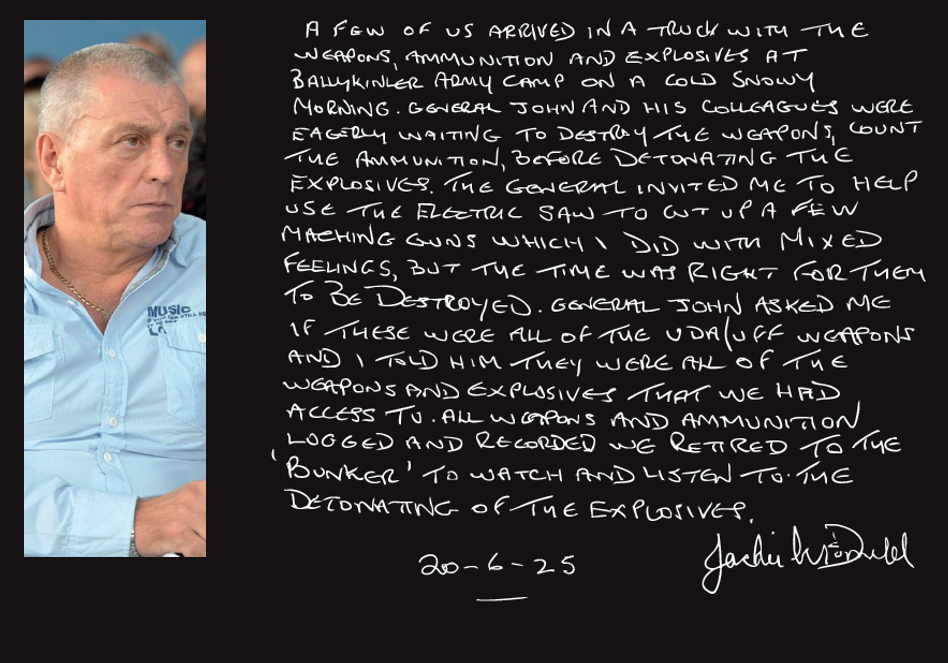 A FEW OF US ARRIVED IN A TRUCK WITH THE
WEAPONS, AMMUNITION AND EXPLOSIVES AT
BALLYKINLER ARMY CAMP ON A COLD SNOWY
MORNING. GENERAL JOHN AND HIS COLLEAGUES WERE
EAGERLY WAITING TO DESTROY THE WEAPONS, COUNT
THE AMMUNITION, BEFORE DETONATING THE
EXPLOSIVES. THE GENERAL INVITED ME TO HELP
USE THE ELECTRIC SAW TO CUT UP A FEW
MACHING GUNS WHICH I DID WITH MIXED
FEELINGS, BUT THE TIME WAS RIGHT FOR THEM
TO BE DESTROYED. GENERAL JOHN ASKED ME
IF THESE WERE ALL OF THE UDA/UFF WEAPONS
AND I TOLD HIM THEY WERE ALL OF THE
WEAPONS AND EXPLOSIVES THAT WE HAD
ACCESS TO. ALL WEAPONS AND AMMUNITION
LOGGED AND RECORDED WE RETIRED TO THE
'BUNKER' TO WATCH AND LISTEN TO THE
DETONATING OF THE EXPLOSIVES.
Jackie McDonald
20-6-25
MUSIC